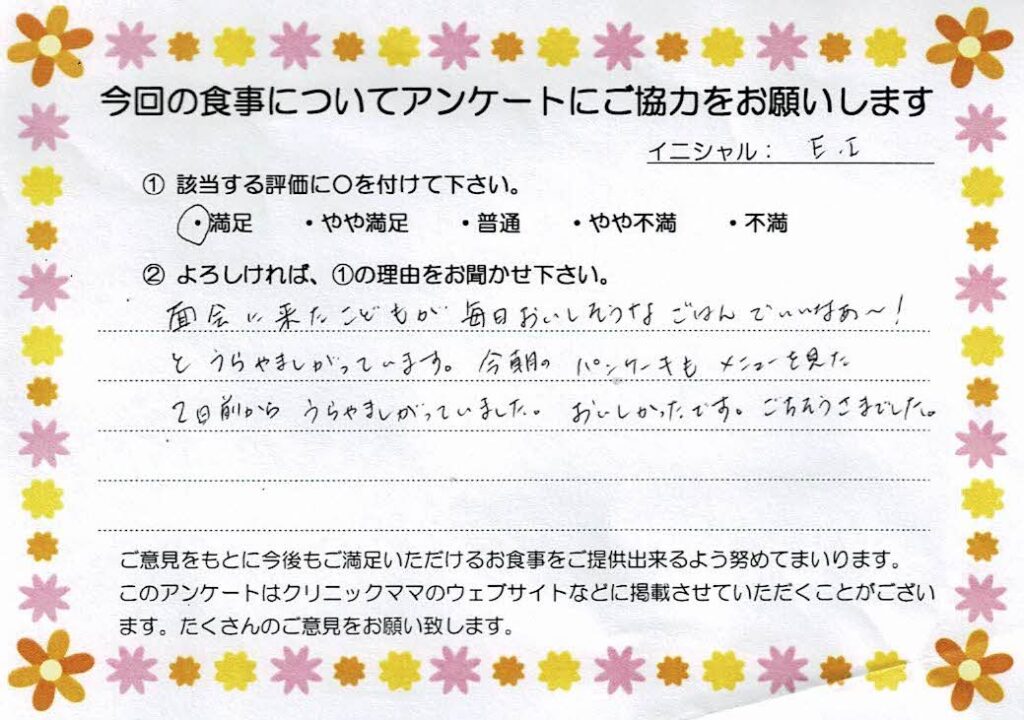 今回の食事についてアンケートにご協力をお願いします
イニシャル： E.I
① 該当する評価に〇を付けて下さい。
・満足 ・やや満足 ・普通 ・やや不満 ・不満
② よろしければ、①の理由をお聞かせ下さい。
面会に来たこどもが毎日おいしそうなごはんでいいなぁ〜！
とうらやましがっています。今朝のパンケーキもメニューを見た
2日前からうらやましがっていました。おいしかったです。ごちそうさまでした。
ご意見をもとに今後もご満足いただけるお食事をご提供出来るよう努めてまいります。
このアンケートはクリニックママのウェブサイトなどに掲載させていただくことがござい
ます。たくさんのご意見をお願い致します。